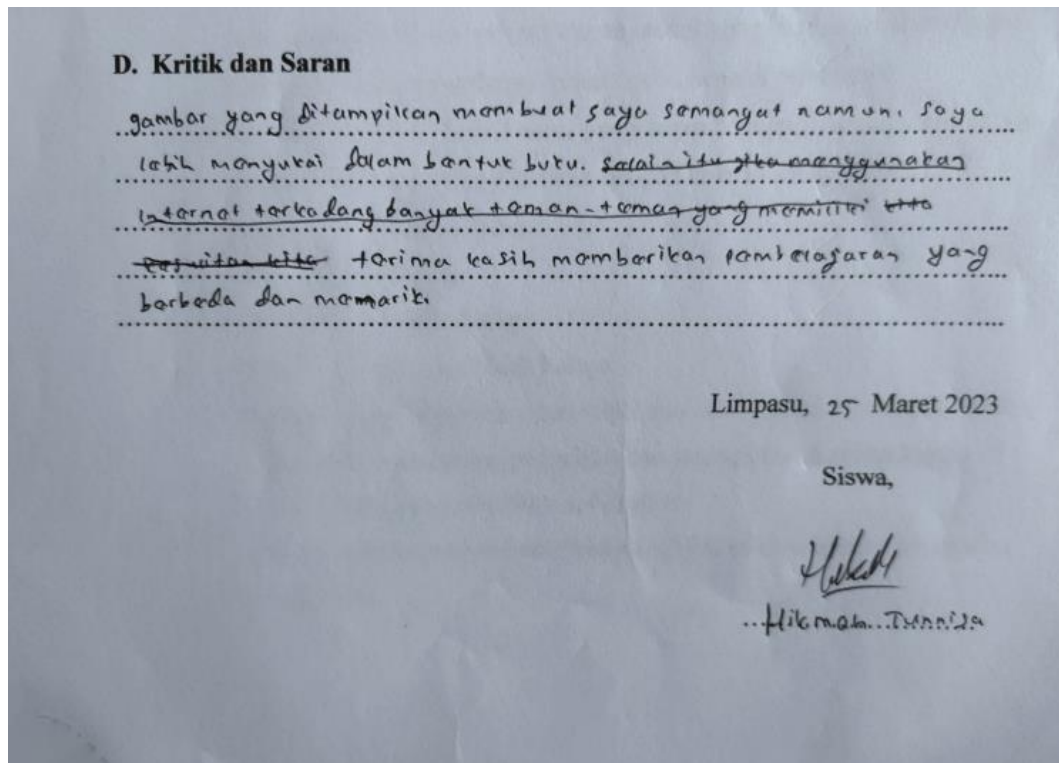 D. Kritik dan Saran
gambar yang ditampilkan membuat saya semangat namun. saya
lebih menyukai dalam bentuk buku. selain itu jika menggunakan
internet terkadang banyak teman-teman yang memiliki
terima kasih memberikan pembelajaran yang
berbeda dan menarik.
Limpasu, 25 Maret 2023
Siswa,
Hikmah